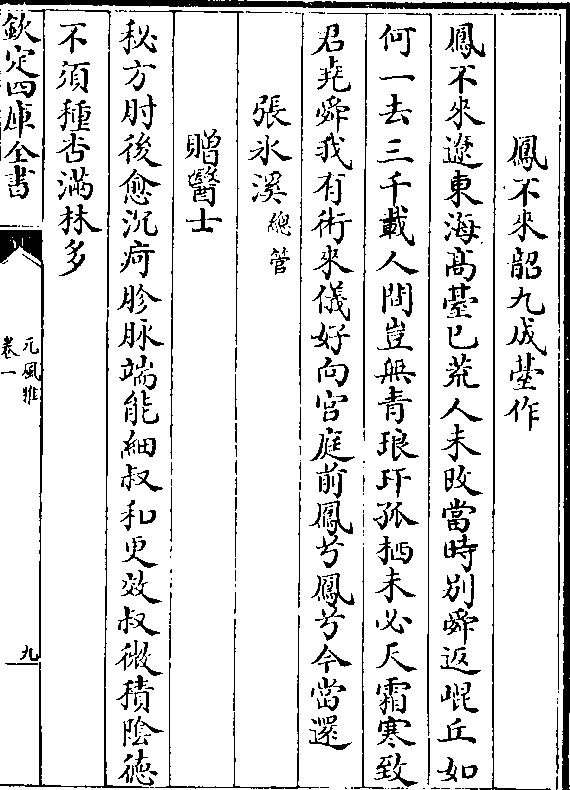 鳳不來韶九成臺作
鳳不來遼東海髙臺已荒人未改當時別舜返崐丘如
何一去三千載人間豈無青琅玕孤栖未必天霜寒致
君堯舜我有術來儀好向宫庭前鳳兮鳳兮今當還
張氷溪總管
贈醫士
秘方肘後愈沉疴胗脉端能細叔和更效叔微積隂徳
不須種杏滿林多
欽定四庫全書
元風雅
卷一
九